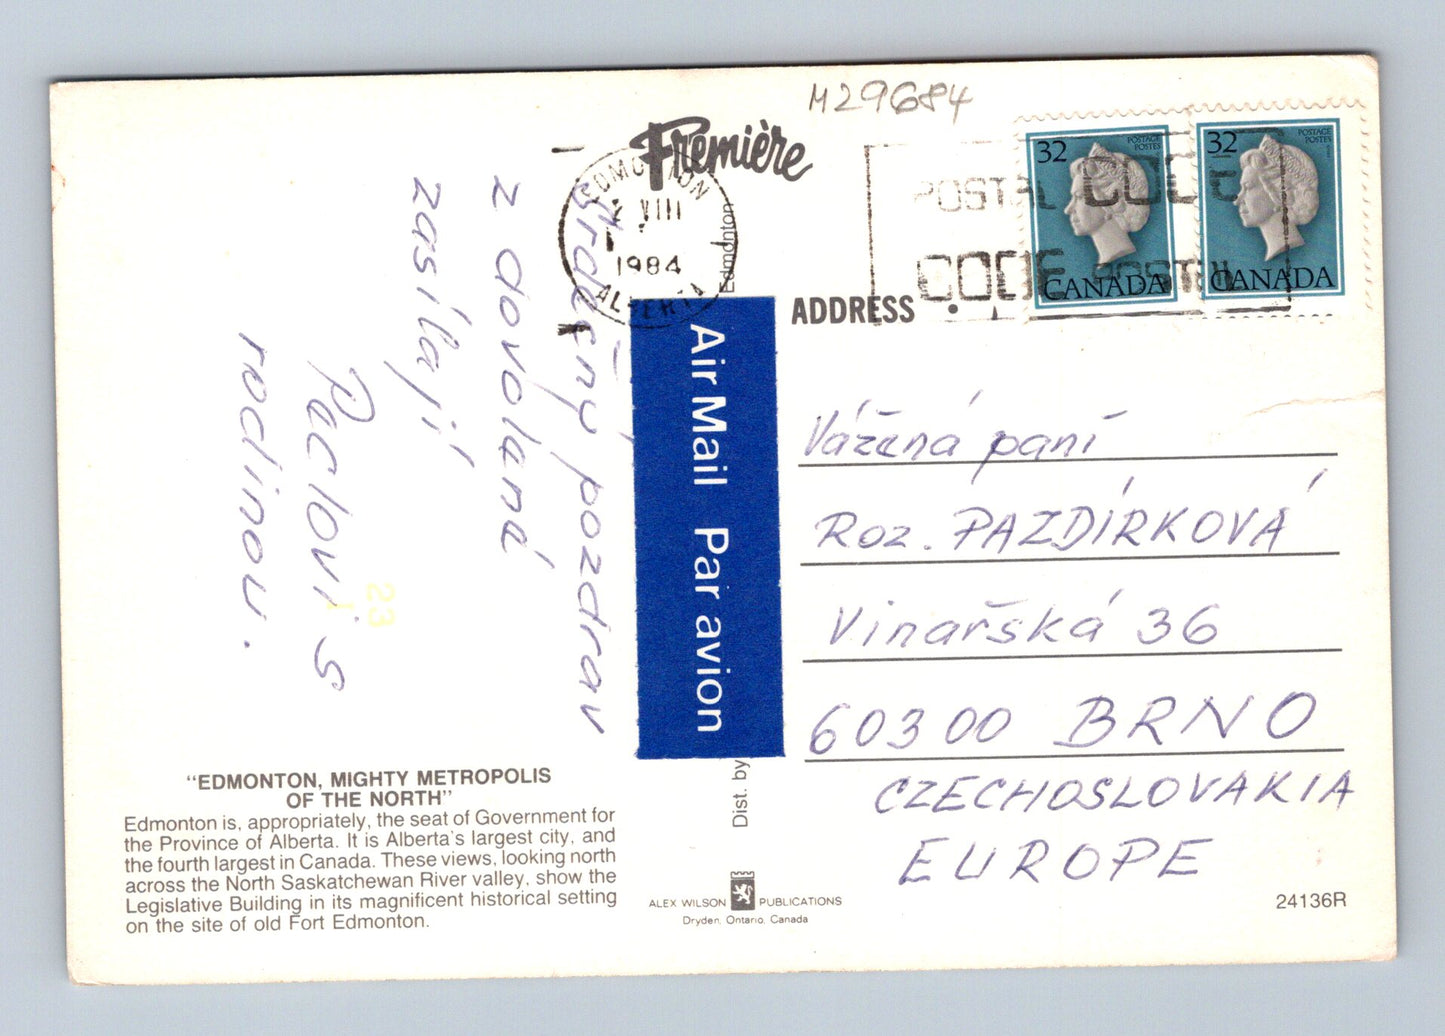 M29684
Première
EDMONTON
VIII
1984
ALBERTA
POSTAL CODE
CODE POSTAL
32
POSTAGE
POSTES
CANADA
32
POSTAGE
POSTES
CANADA
Srdečný pozdrav
z dovolené
zasílají
Peclovi s
rodinou.
23
Edmonton
Air Mail Par avion
Dist. by
ADDRESS
Vážená paní
Roz. PAZDÍRKOVÁ
Vinařská 36
60300 BRNO
CZECHOSLOVAKIA
EUROPE
"EDMONTON, MIGHTY METROPOLIS
OF THE NORTH"
Edmonton is, appropriately, the seat of Government for
the Province of Alberta. It is Alberta's largest city, and
the fourth largest in Canada. These views, looking north
across the North Saskatchewan River valley, show the
Legislative Building in its magnificent historical setting
on the site of old Fort Edmonton.
ALEX WILSON PUBLICATIONS
Dryden, Ontario, Canada
24136R